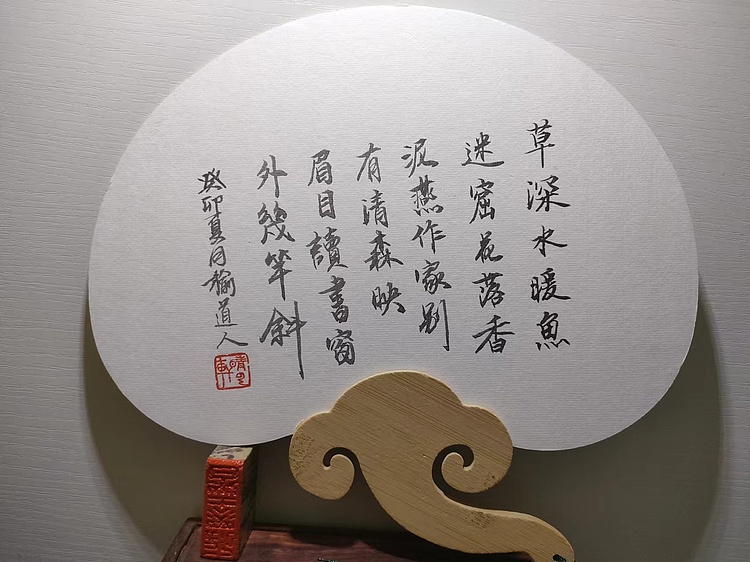 草深水暖魚
迷窟花落香
泥燕作家别
有清森映
眉目讀書窗
外幾竿斜
癸卯夏月榆道人